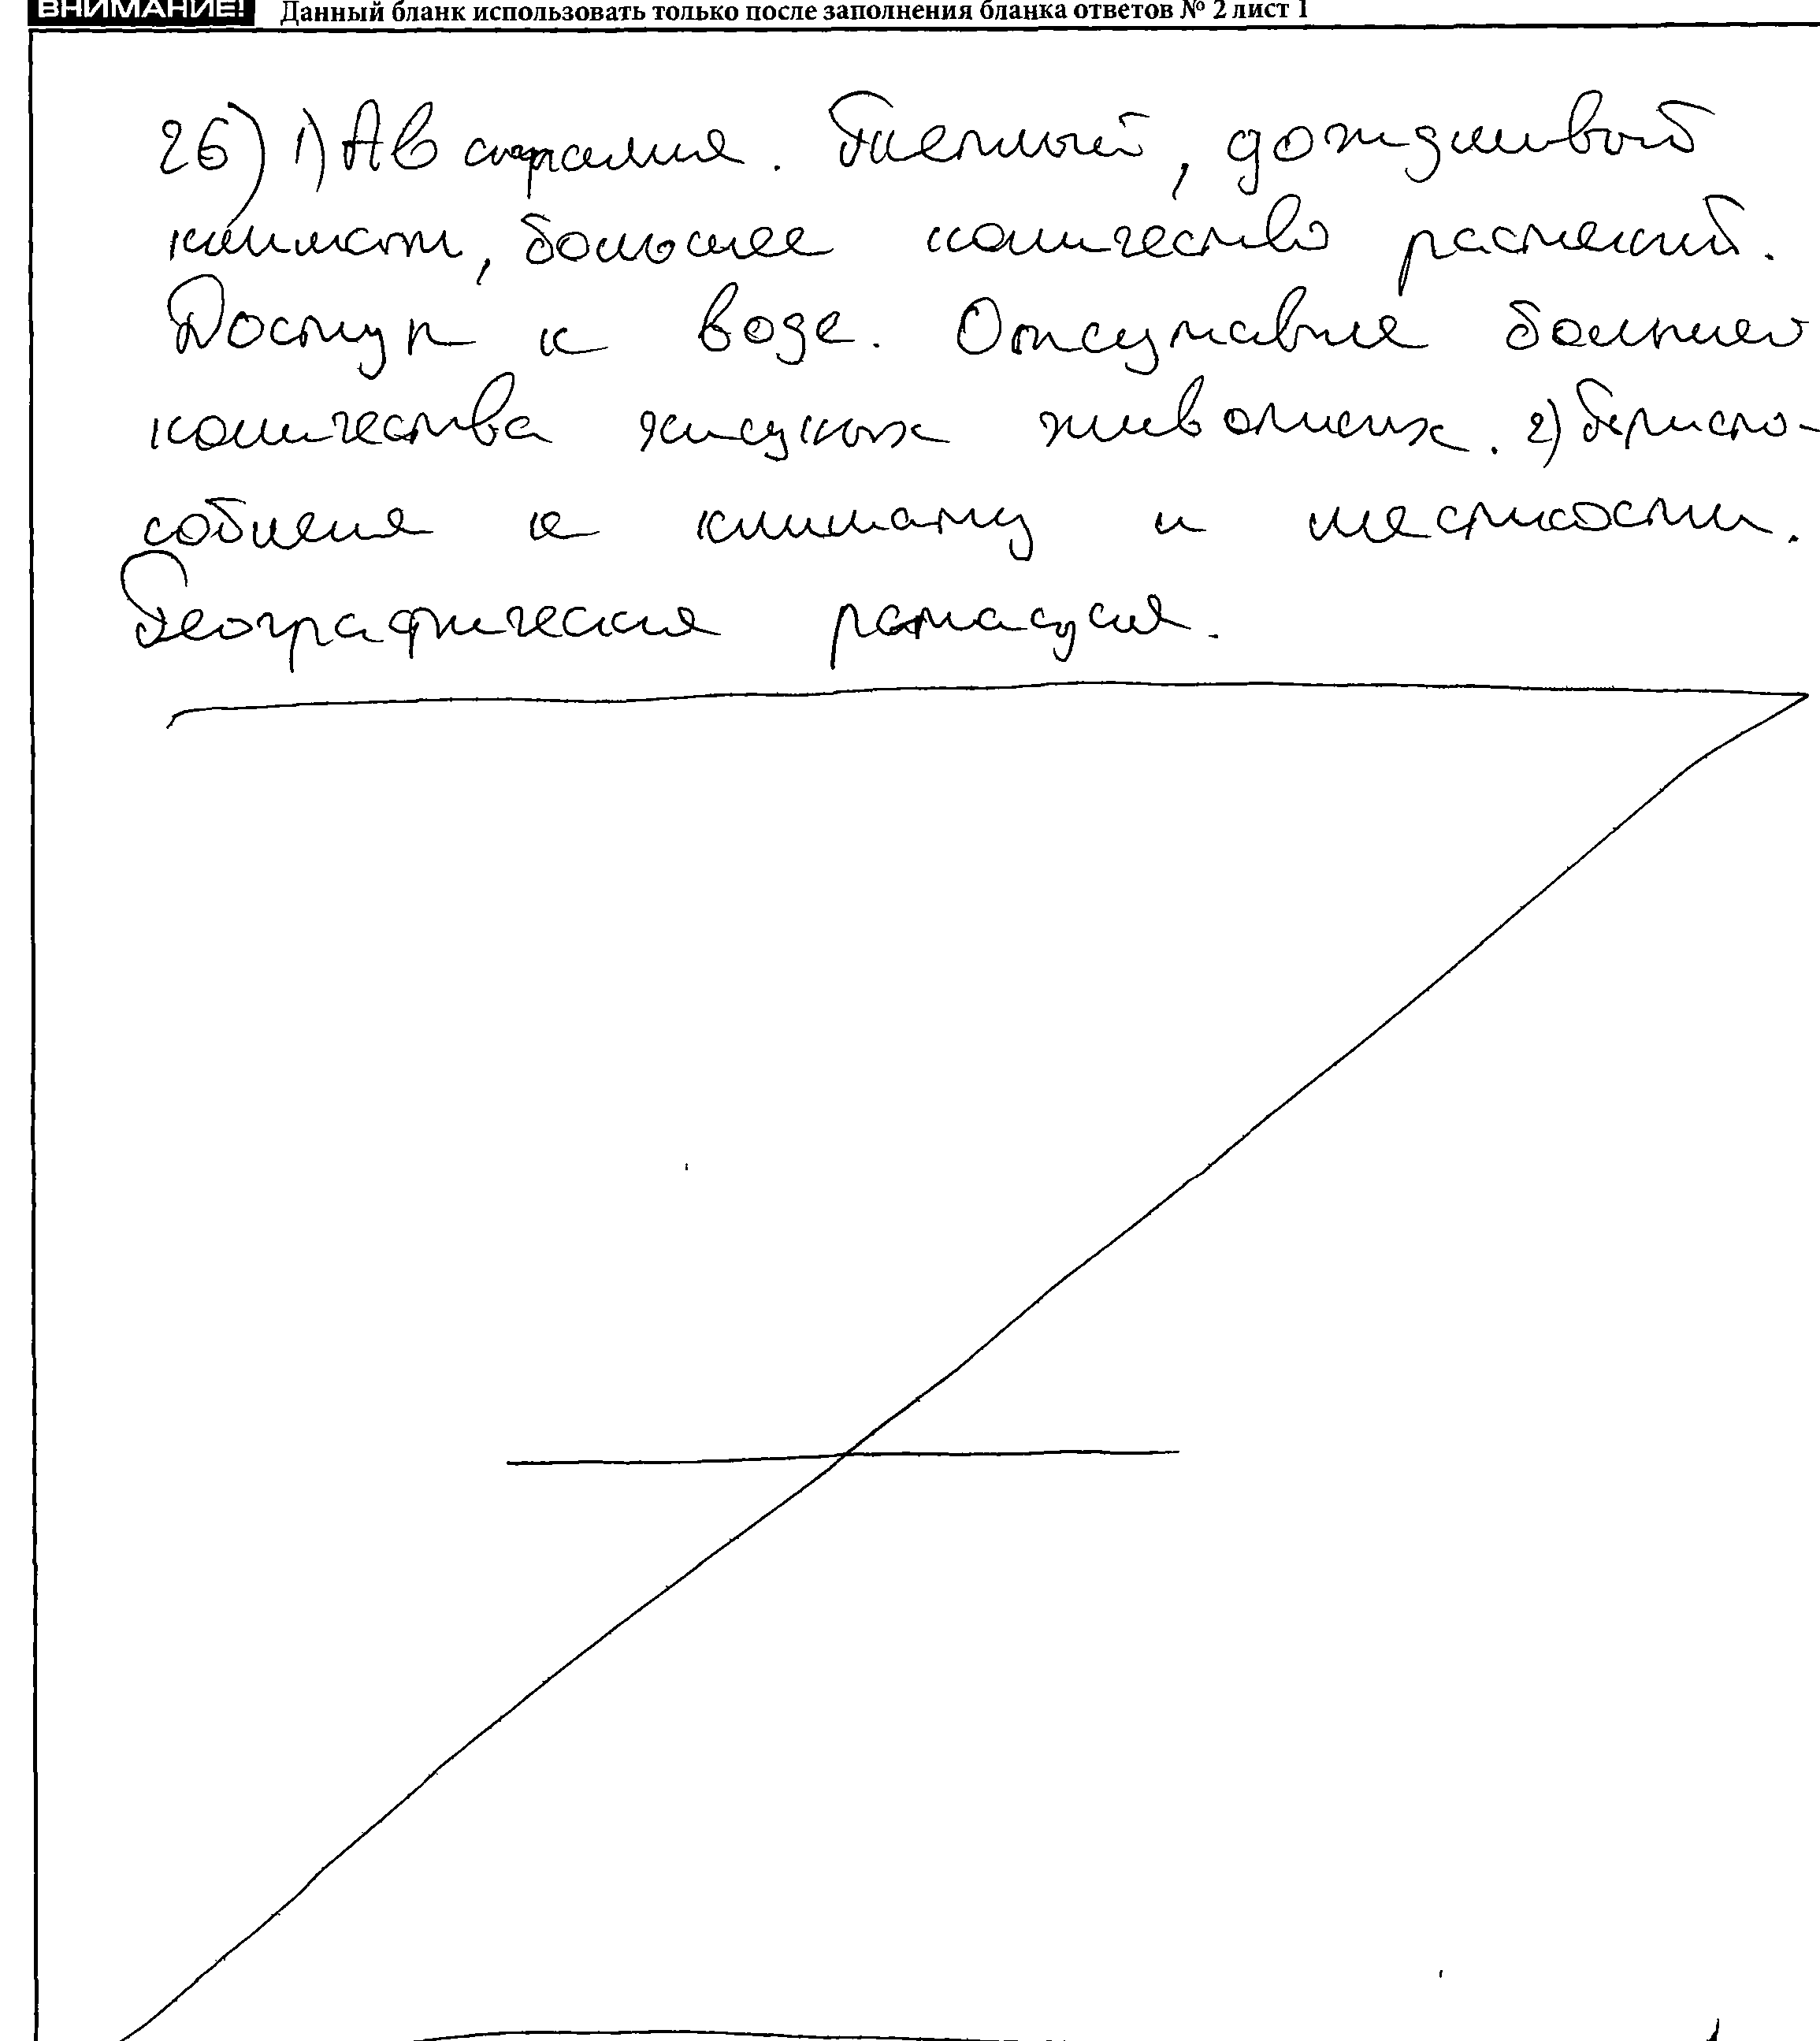 ВНИМАНИЕ! Данный бланк использовать только после заполнения бланка ответов № 2 лист 1
26) 1) Австралия. Тёплый, дождливый
климат, большее количество растений.
Доступ к воде. Отсутствие большего
количества хищных животных. 2) Приспо-
собления к климату и местности.
Географическая